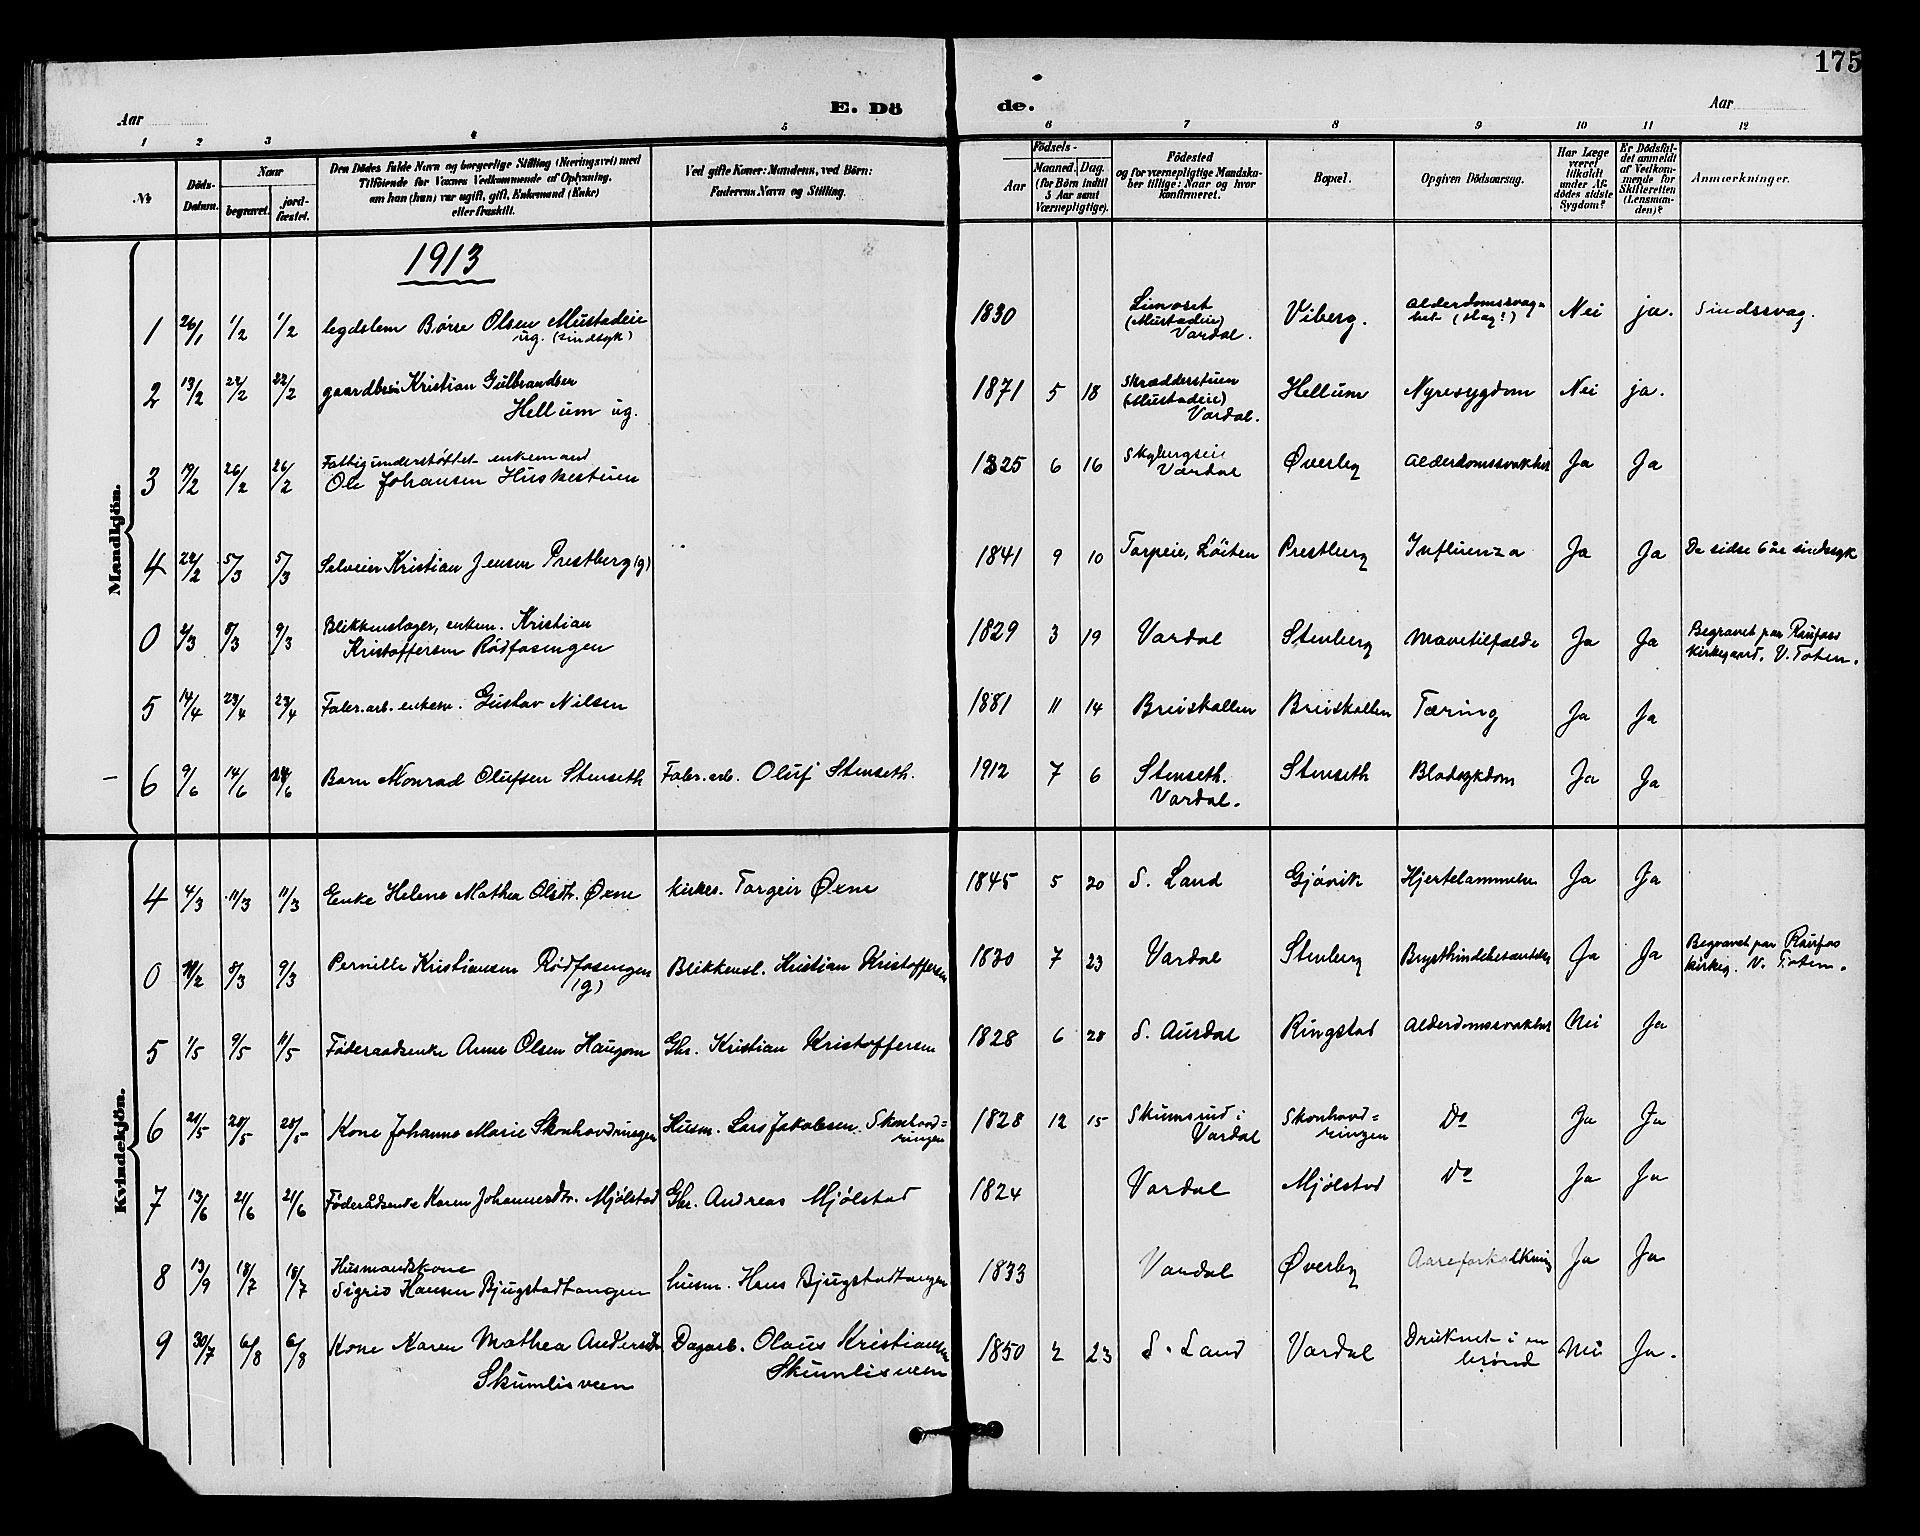 175
Aar
E. Dö de.
Aar
1 2 3 4 5 6 7 8 9 10 11 12
No
Döds-Datum.
Naar
begravet.
jord-fæstet.
Den Dödes fulde Navn og borgerlige Stilling (Næringsvei) med
Tilföiende for Voxnes Vedkommende af Oplysning,
om han (hun) var ugift, gift, Enkemand (Enke)
eller fraskilt.
Ved gifte Koner: Mandens, ved Börn:
Faderens Navn og Stilling.
Födsels-
Aar
Maaned. Dag.
(for Börn indtil
5 Aar samt
Værnepligtige).
Födested
og for værnepligtige Mandska-
ber tillige: Naar og hvor
konfirmeret.
Bopæl.
Opgiven Dödsaarsag.
Har Læge
været
tilkaldt
under Af-
dödes sidste
Sygdom?
Er Dödsfal-
det anmeldt
af Vedkom-
mende for
Skifteretten
(Lensman-
den)?
Anmærkninger.
Mandkjön.
1913
1 26/1 1/2 1/2 legdslem Børre Olsen Mustadeie 1830 Limoset Viberg. Alderdomssvag- Nei ja. Sindssvag.
ug. (sindsyk) (Mustadeie) het (slag?)
Vardal.
2 13/2 22/2 22/2 gaardbr. Kristian Gulbrandsen 1871 5 18 Skrædderstuen Hellum Nyresygdom Nei ja.
Hellum ug. (Mustadeie)
Vardal.
3 19/2 26/2 26/2 Fattigunderstøttet enkemand 1825 6 16 Skybergseie Øverby Alderdomssvakhet Ja Ja
Ole Johansen Huskestuen Vardal
4 24/2 5/3 5/3 Selveier Kristian Jensen Prestberg (g) 1841 9 10 Torpeie, Löiten Prestberg Influenza Ja Ja De sidse 6 år sindssyk
0 2/3 8/3 9/3 Blikkenslager, enkem. Kristian 1829 3 19 Vardal Stenberg Mavetilfælde Ja Ja Begravet paa Raufoss
Kristoffersen Rødfosengen kirkegaard, V. Toten.
5 14/4 23/4 23/4 Faber.arb. enkem. Gustav Nilsen 1881 11 14 Breiskallen Breiskallen Tæring Ja Ja
6 9/6 14/6 24/6 Barn Monrad Olufsen Stenseth Faber.arb. Oluf Stenseth. 1912 7 6 Stenseth. Stenseth Blodsykdom Ja Ja
Vardal.
Kvindekjön.
4 4/3 11/3 11/3 Enke Helene Mathea Olsdtr. Øxne kirkes. Torgeir Øxne 1845 5 20 S. Land Gjøvik Hjertelammelse Ja Ja
0 /2 8/3 9/3 Pernille Kristiansen Rødfosengen Blikkensl. Kristian Kristoffersen 1830 7 23 Vardal Stenberg Brysthindebetændelse Ja Ja Begravet paa Raufos
(g) kirkeg. V. Toten.
5 1/5 9/5 11/5 Føderaadsenke Anne Olsen Haugom Gbr. Kristian Kristoffersen 1828 6 28 S. Aurdal Ringstad Alderdomssvakhet Nei Ja
6 21/5 28/5 28/5 Kone Johanne Marie Skonhovdringen Husm. Lars Jakobsen Skonhovd= 1828 12 15 Skumsrud i Skonhovd= Do Ja Ja
ringen Vardal ringen
7 13/6 21/6 21/6 Føderådsenke Karen Johannesdtr. Mjølstad Gbr. Andreas Mjølstad 1824 Vardal Mjølstad Do Ja Ja
8 13/9 18/7 18/7 Husmandskone 1833 Vardal Øverby Aareforkalkning Ja Ja
Sigrid Hansen Bjugstadtangen husm. Hans Bjugstadtangen
9 30/7 6/8 6/8 Kone Karen Mathea Andersdtr Dagarb. Olaus Kristiansen 1850 2 23 S. Land Vardal Druknet i en Nei Ja.
Skumlisveen Skumlisveen brønd